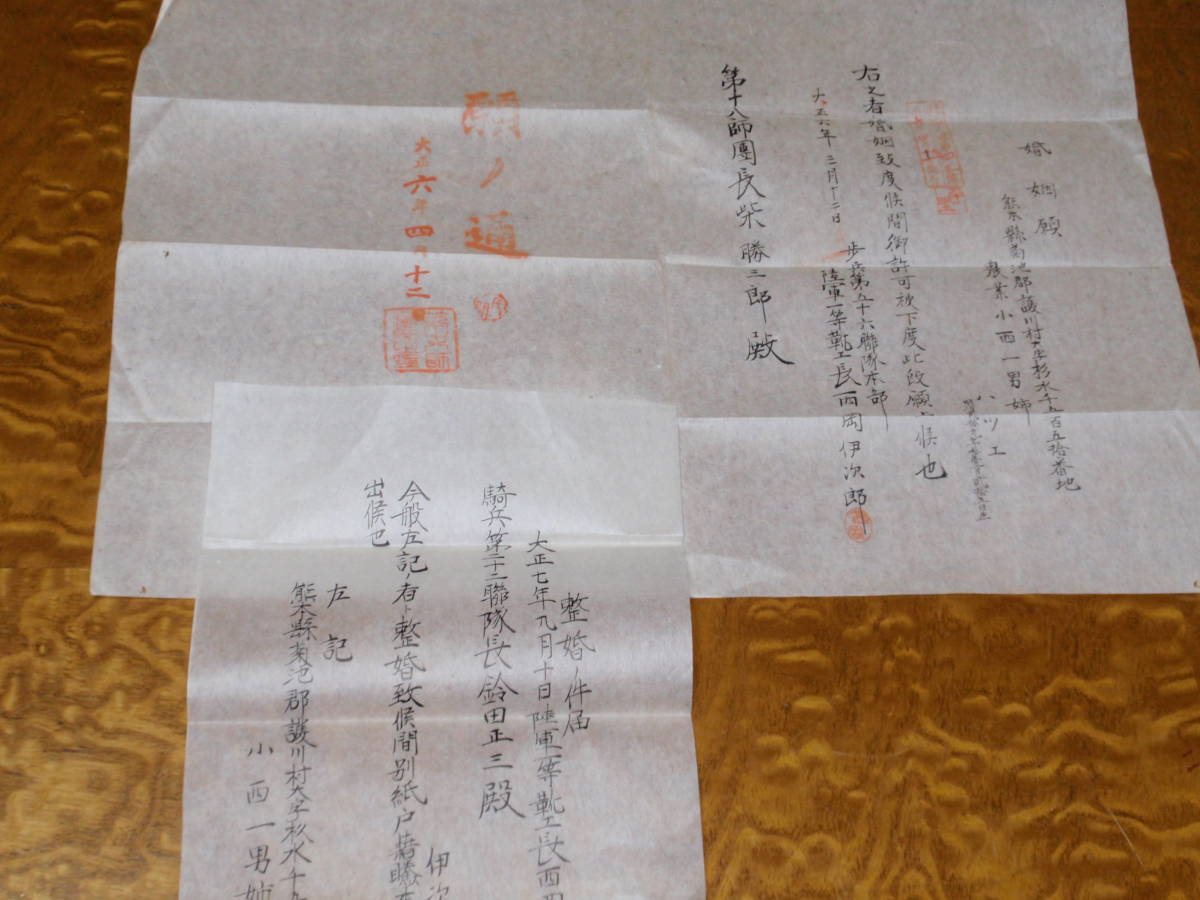 婚姻願
熊本縣菊池郡護川村大字杉水千九百五拾番地
農業小西一男姉
ハツエ
右之者婚姻致度候間御許可被下度此段願上候也
大正六年三月十二日
歩兵第五十六聯隊本部
陸軍一等靴工長西岡伊次郎
第十八師團長柴勝三郎殿
願ノ通
大正六年四月十二
整婚ノ件届
大正七年九月十日陸軍一等靴工長西
伊次
騎兵第二十二聯隊長鈴田正三殿
今般左記ノ者ト整婚致候間別紙戸籍謄本
出候也
左記
熊本縣菊池郡護川村大字杉水千九
小西一男姉